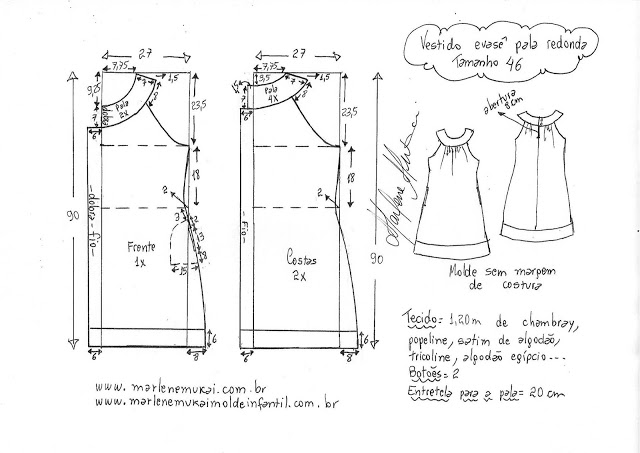 Vestido evasê pala redonda
Tamanho 46
27
7,75
1,5
7
8
Pala
2x
dobra
7
6
23,5
18
2
3
2
15
90
- dobra - fio -
Frente
1x
6
8
6
27
7,75
3,5
1,5
7
8
Pala
4x
7
6
23,5
18
2
90
- Fio -
Costas
2x
6
8
6
abertura
8cm
Marlene Mukai
Molde sem margem
de costura
Tecido= 1,20m de chambray,
popeline, satim de algodão,
tricoline, algodão egípcio...
Botões= 2
Entretela para a pala= 20 cm
www.marlenemukai.com.br
www.marlenemukaimoldeinfantil.com.br